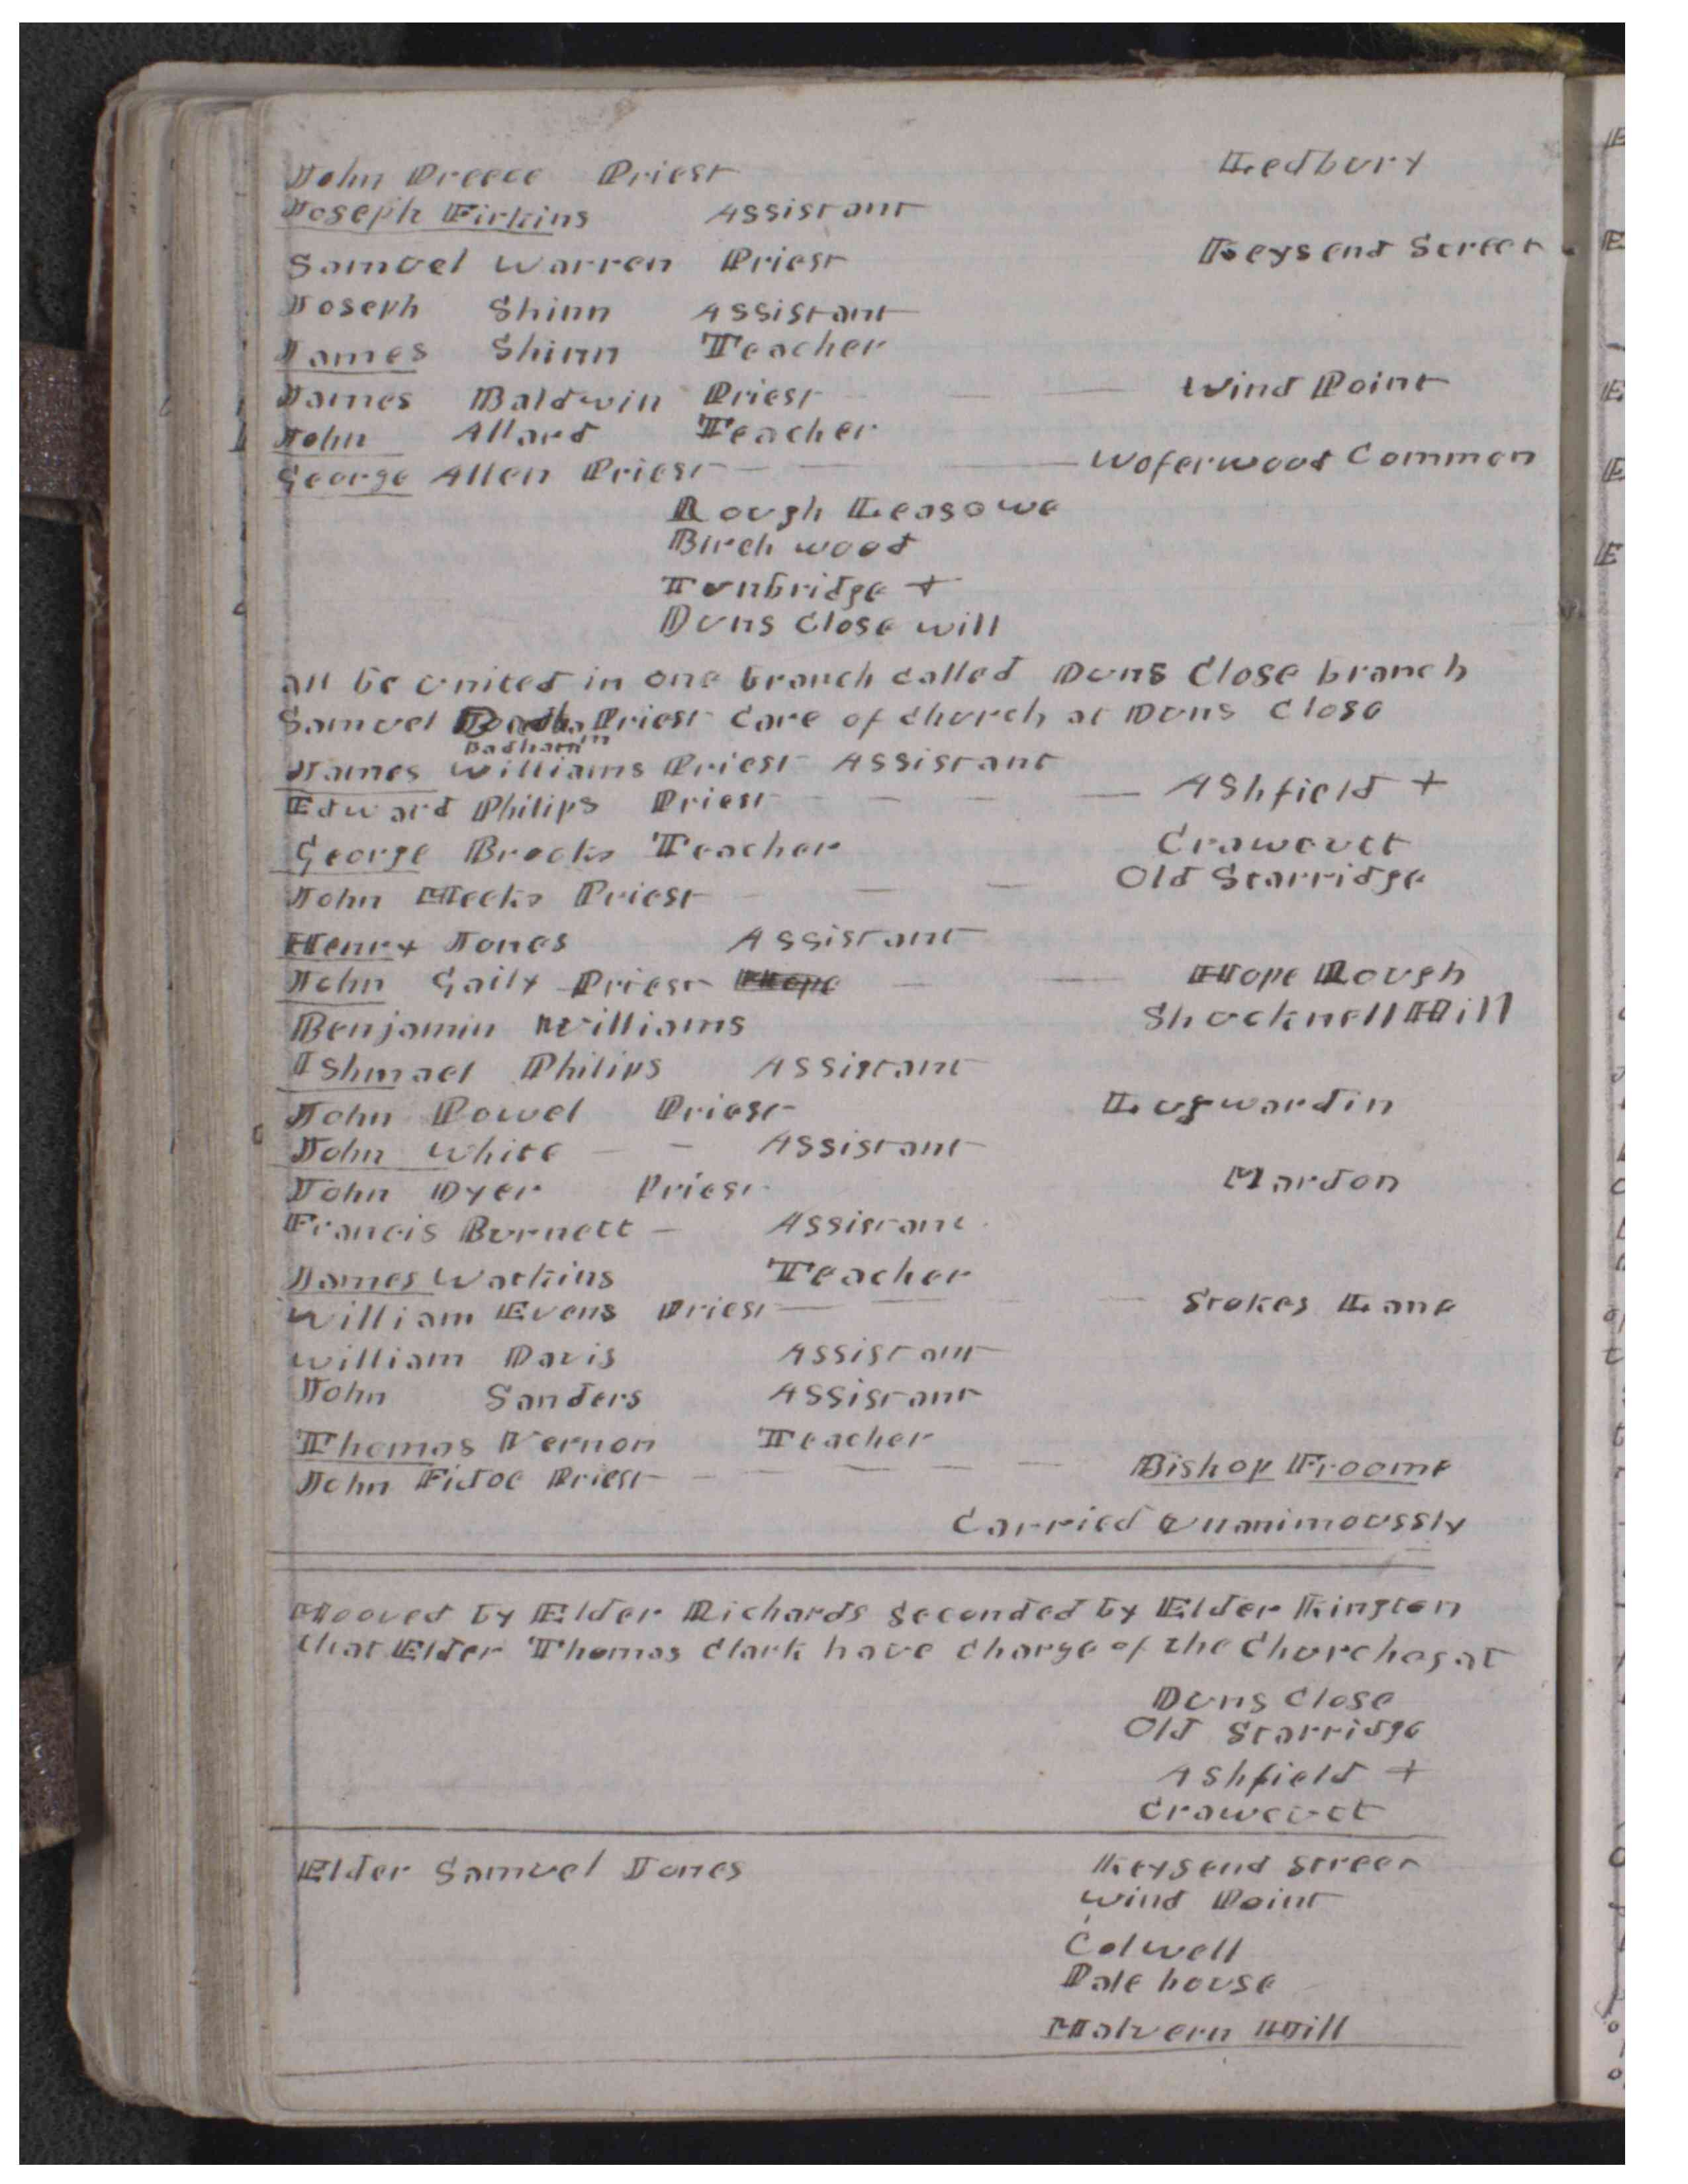 John Preece Priest Ledbury
Joseph Firkins Assistant
Samuel Warren Priest Keysend Street
Joseph Shinn Assistant
James Shinn Teacher
James Baldwin Priest — — Wind Point
John Allard Teacher
George Allen Priest — — — Woferwood Common
Rough Leasowe
Birch wood
Tunbridge +
Duns Close will
all be united in one branch called Duns Close branch
Samuel Priest Care of church at Duns Close
Badham
James Williams Priest Assistant
Edward Philips Priest — — — Ashfield +
George Brooks Teacher Crawcutt
John Meeks Priest — — — Old Starridge
Henry Jones Assistant
John Gaily Priest Hope — — Hope Rough
Benjamin Williams Shucknell Hill
Ishmael Philips Assistant
John Powel Priest Lugwardin
John White — — Assistant
John Dyer Priest Mardon
Francis Burnett — Assistant
James Watkins Teacher
William Evens Priest — — — Stokes Lane
William Davis Assistant
John Sanders Assistant
Thomas Vernon Teacher
John Fidoe Priest — — — — — Bishop Froome
Carried Unanimoussly
Mooved by Elder Richards Seconded by Elder Kington
that Elder Thomas Clark have charge of the Churches at
Duns Close
Old Starridge
Ashfield +
Crawcutt
Elder Samuel Jones Keysend Street
Wind Point
Colwell
Pale house
Malvern Hill